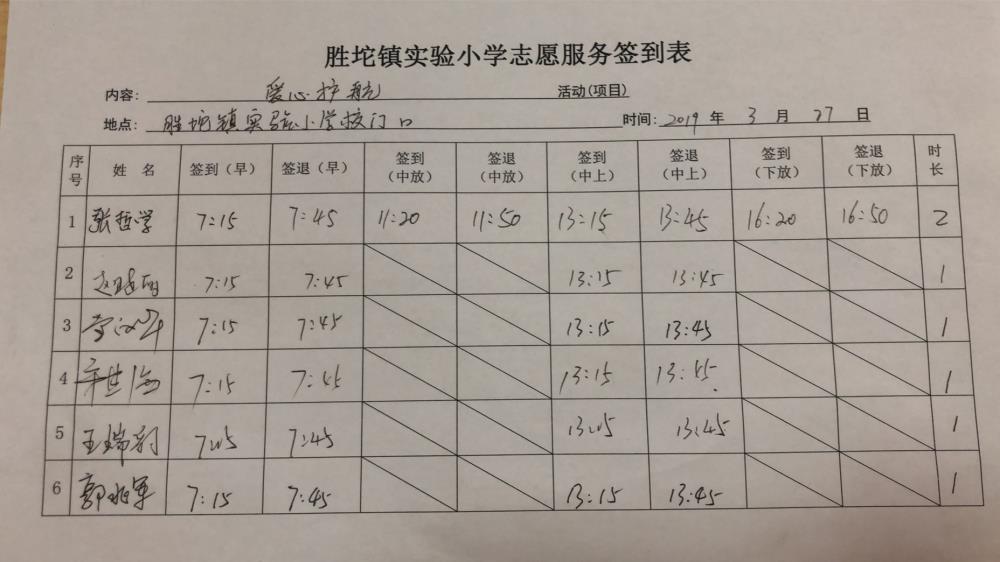 胜坨镇实验小学志愿服务签到表
内容: 爱心护航 活动(项目)
地点: 胜坨镇实验小学校门口 时间: 2019 年 3 月 27 日
序号 姓 名 签到（早） 签退（早） 签到（中放） 签退（中放） 签到（中上） 签退（中上） 签到（下放） 签退（下放） 时长
1 张哲学 7:15 7:45 11:20 11:50 13:15 13:45 16:20 16:50 2
2 7:15 7:45 13:15 13:45 1
3 7:15 7:45 13:15 13:45 1
4 7:15 7:45 13:15 13:45 1
5 王瑞 7:15 7:45 13:15 13:45 1
6 郭 军 7:15 7:45 13:15 13:45 1